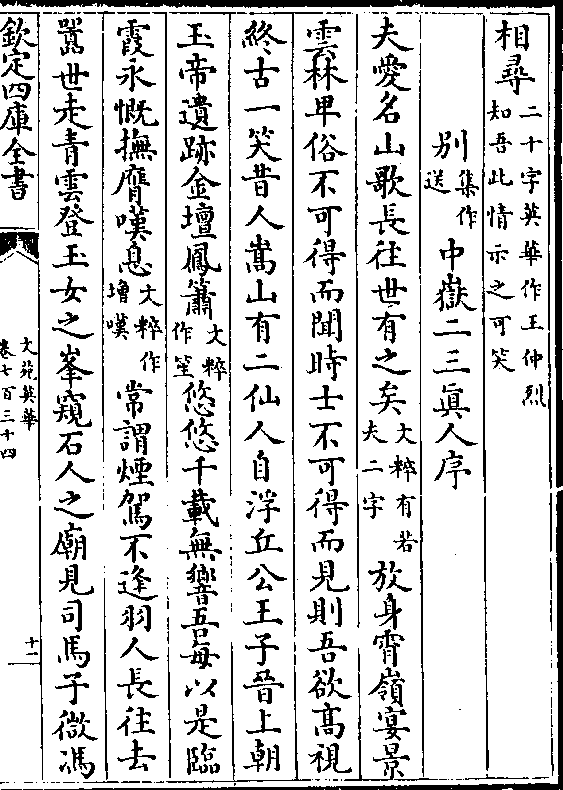 相尋二十字英華作王仲烈知吾此情示之可笑
別集作送中嶽二三眞人序
夫愛名山歌長往世有之矣文粹有若夫二字放身霄嶺宴景
雲林卑俗不可得而聞時士不可得而見則吾欲高視
終古一笑昔人嵩山有二仙人自浮丘公王子晉上朝
玉帝遺跡金壇鳳簫文粹作笙悠悠千載無響吾每以是臨
霞永慨撫膺嘆息文粹作增嘆常謂煙駕不逢羽人長往去
囂世走青雲登玉女之峯窺石人之廟見司馬子微馮
欽定四庫全書
文苑英華
卷七百三十四
十一